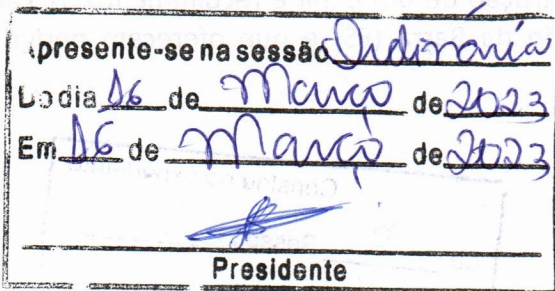 Apresente-se na sessão Ordinária
Do dia 16 de Março de 2023
Em 16 de Março de 2023
Presidente